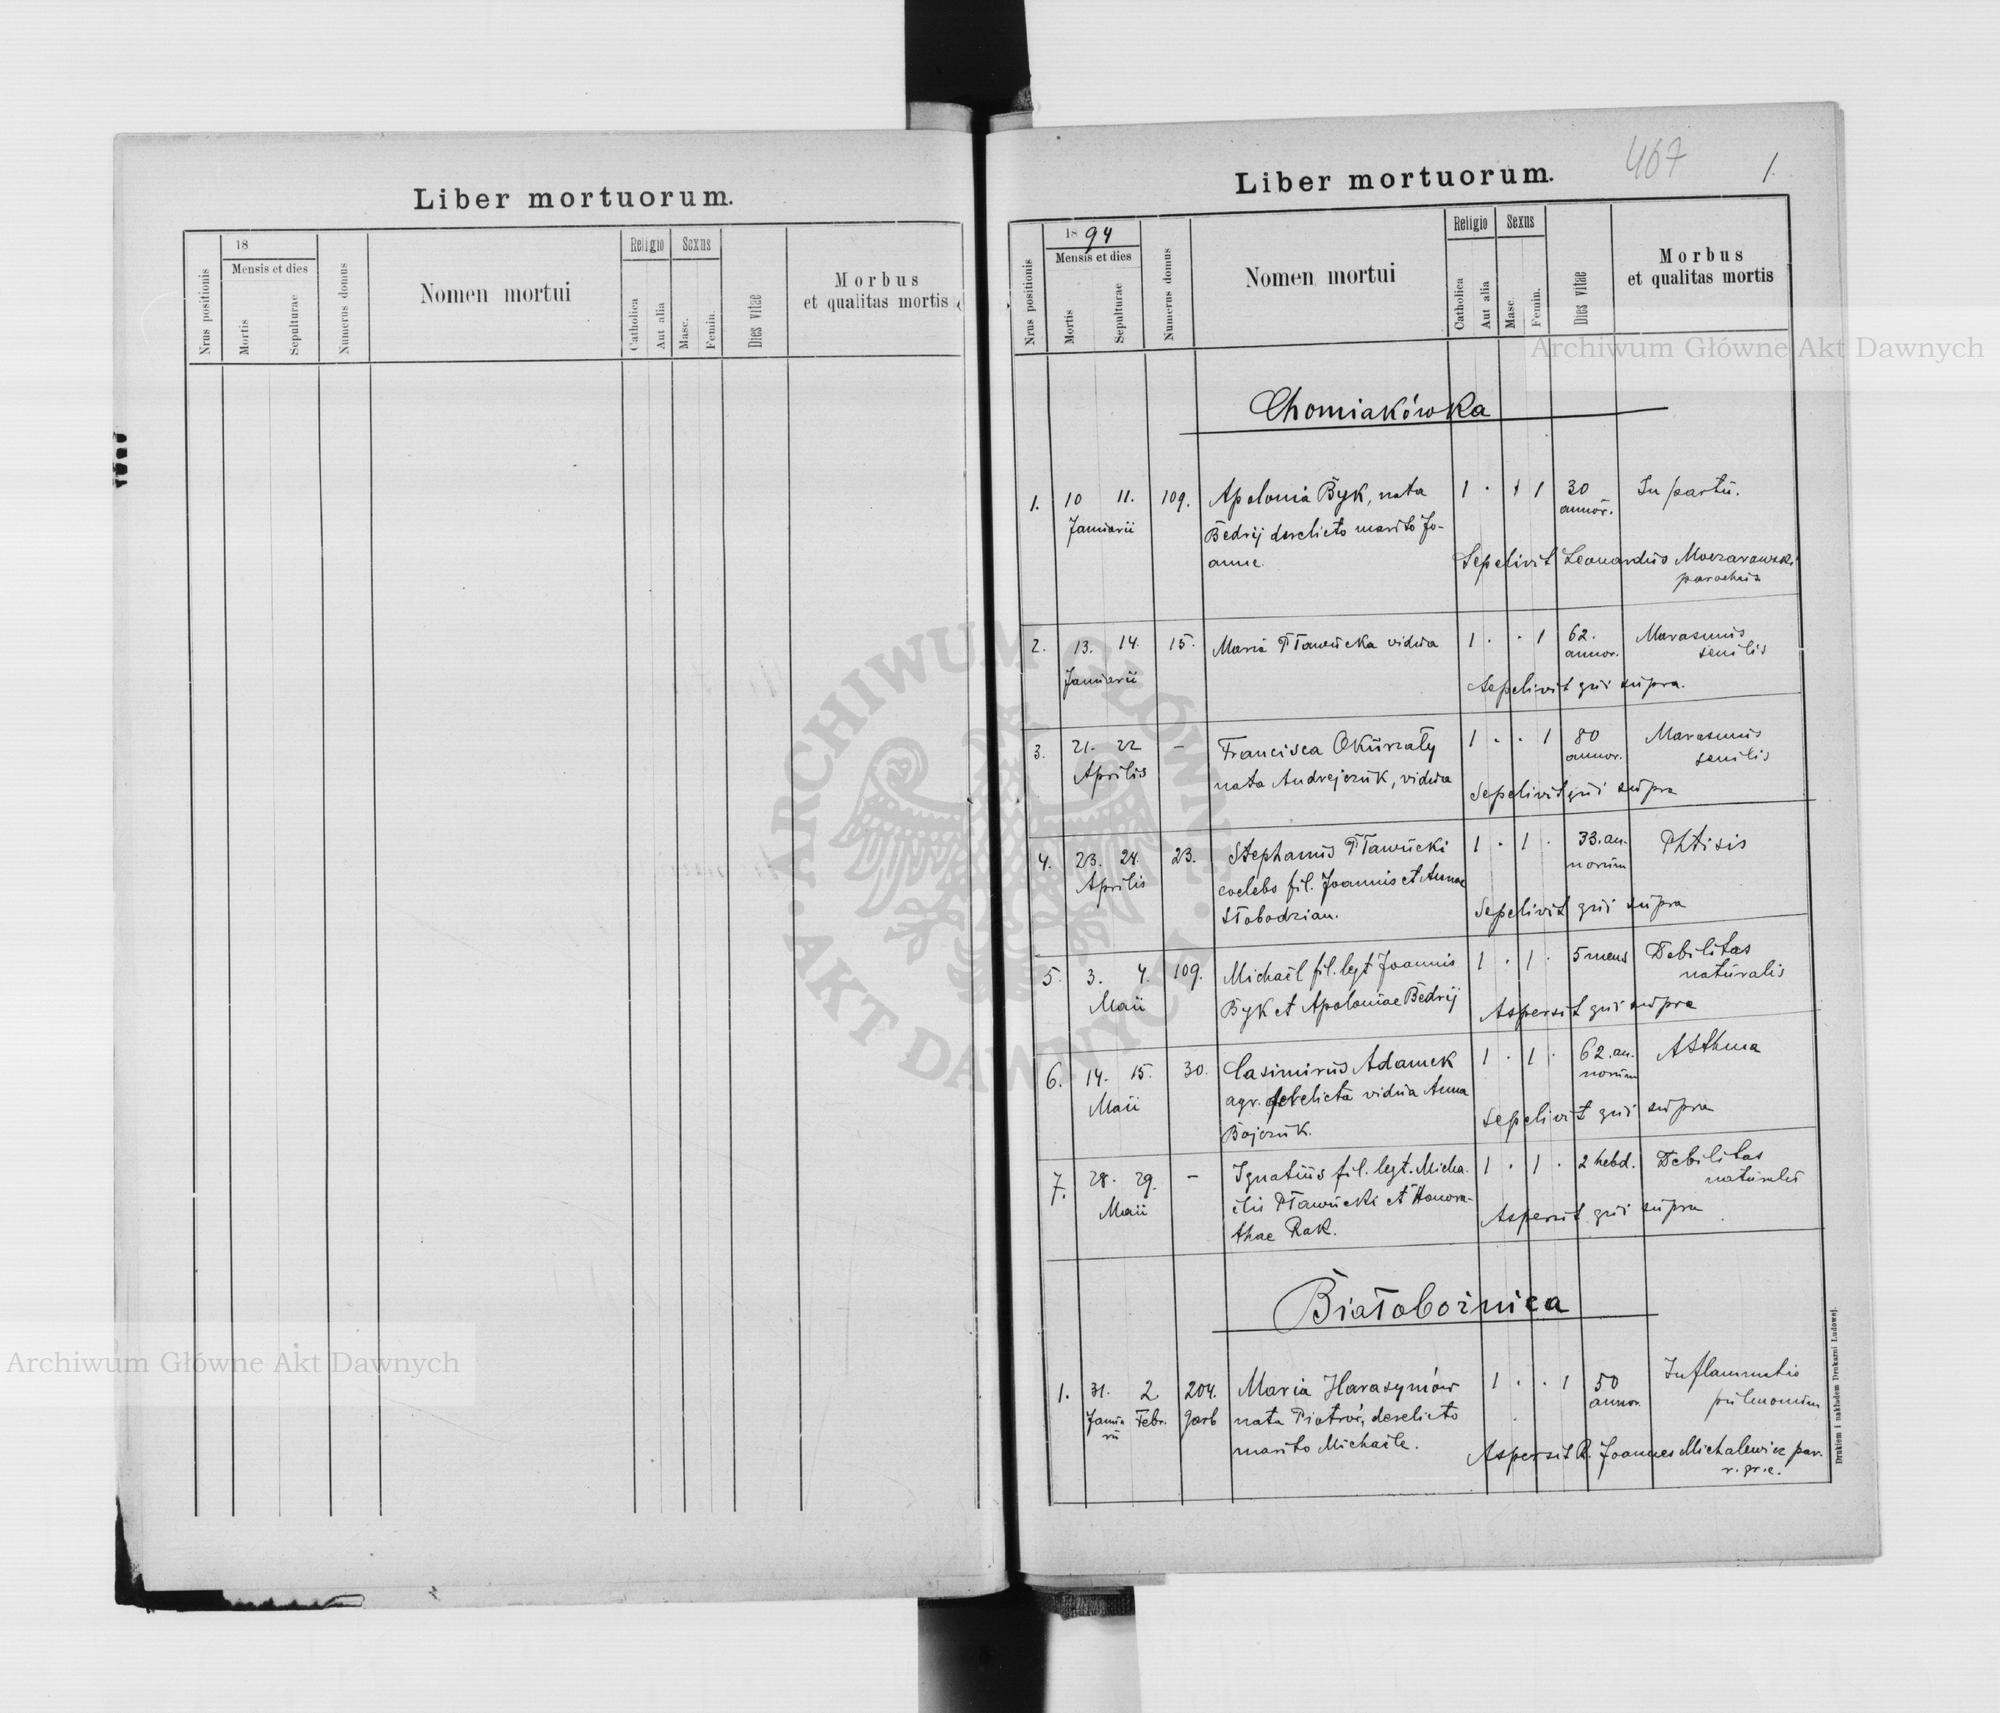 Liber mortuorum.
18
Mensis et dies
Nrus positionis
Mortis
Sepulturae
Numerus domus
Nomen mortui
Religio
Catholica
Aut alia
Sexus
Masc.
Femin.
Dies vitae
Morbus
et qualitas mortis
467
1.
Liber mortuorum.
1894
Mensis et dies
Nrus positionis
Mortis
Sepulturae
Numerus domus
Nomen mortui
Religio
Catholica
Aut alia
Sexus
Masc.
Femin.
Dies vitae
Morbus
et qualitas mortis
Archiwum Główne Akt Dawnych
Chomiakówka
1. 10 11. 109. Apolonia Byk, nata 1 · 1 30 In partu.
Januarii Bedrij derelicto marito Jo- annor.
anne. Sepelivit Leonardus Moczarowski
parochus
2. 13. 14. 15. Maria Pławucka vidua 1 · · 1 62. Marasmus
Januarii annor. senilis
Sepelivit qui supra.
3. 21. 22 – Francisca Okurzały 1 · · 1 80 Marasmus
Aprilis nata Andrejczuk, vidua annor. senilis
Sepelivit qui supra
4. 23. 24. 23. Stephanus Pławucki 1 · 1 · 33. an- Phtisis
Aprilis coelebs fil. Joannis et Annae norum
Słobodzian. Sepelivit qui supra
5. 3. 4. 109. Michaël fil. legt Joannis 1 · 1 · 5 mens Debilitas
Maii Byk et Apoloniae Bedrij naturalis
Aspersit qui supra
6. 14. 15. 30. Casimirus Adamek 1 · 1 · 62. an- Asthma
Maii agr. derelicta vidua Anna norum
Bojczuk. Sepelivit qui supra
7. 28. 29. – Ignatius fil. legt. Micha- 1 · 1 · 2 hebd. Debilitas
Maii elis Pławucki et Honora- naturalis
thae Rak. Aspersit qui supra
Białobożnica
1. 31. 2 204. Maria Harasymów 1 · · 1 50 Inflammatio
Janua Febr. garb nata Piotrów, derelicto annor. pulmonum
rii marito Michaële.
Aspersit R. Joannes Michalewicz par.
r. gr. c.
Drukiem i nakładem Drukarni Ludowej.
Archiwum Główne Akt Dawnych
ARCHIWUM GŁÓWNE
AKT DAWNYCH